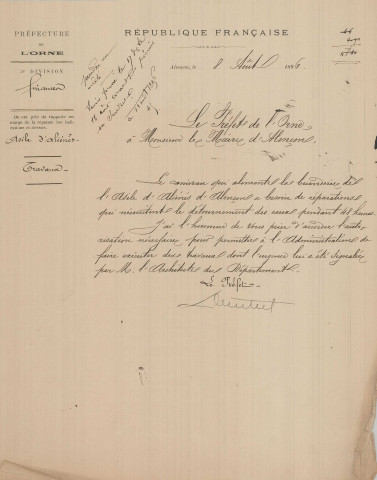 PRÉFECTURE
DE
L'ORNE
3e DIVISION
Finances
On est prié de rappeler en
marge de la réponse les indi-
cations ci-dessus.
Asile d'aliénés
Travaux
RÉPUBLIQUE FRANÇAISE
Alençon, le 8 Août 1886
Le Préfet de l'Orne
à Monsieur le Maire d'Alençon
Le caniveau qui alimente les buanderies de
l'Asile d'Aliénés d'Alençon a besoin de réparations
qui nécessitent le détournement des eaux pendant 48 heures.
J'ai l'honneur de vous prier d'accorder l'auto-
risation nécessaire pour permettre à l'Administration de
faire exécuter des travaux dont l'urgence lui a été signalée
par M. l'Architecte du Département.
Le Préfet